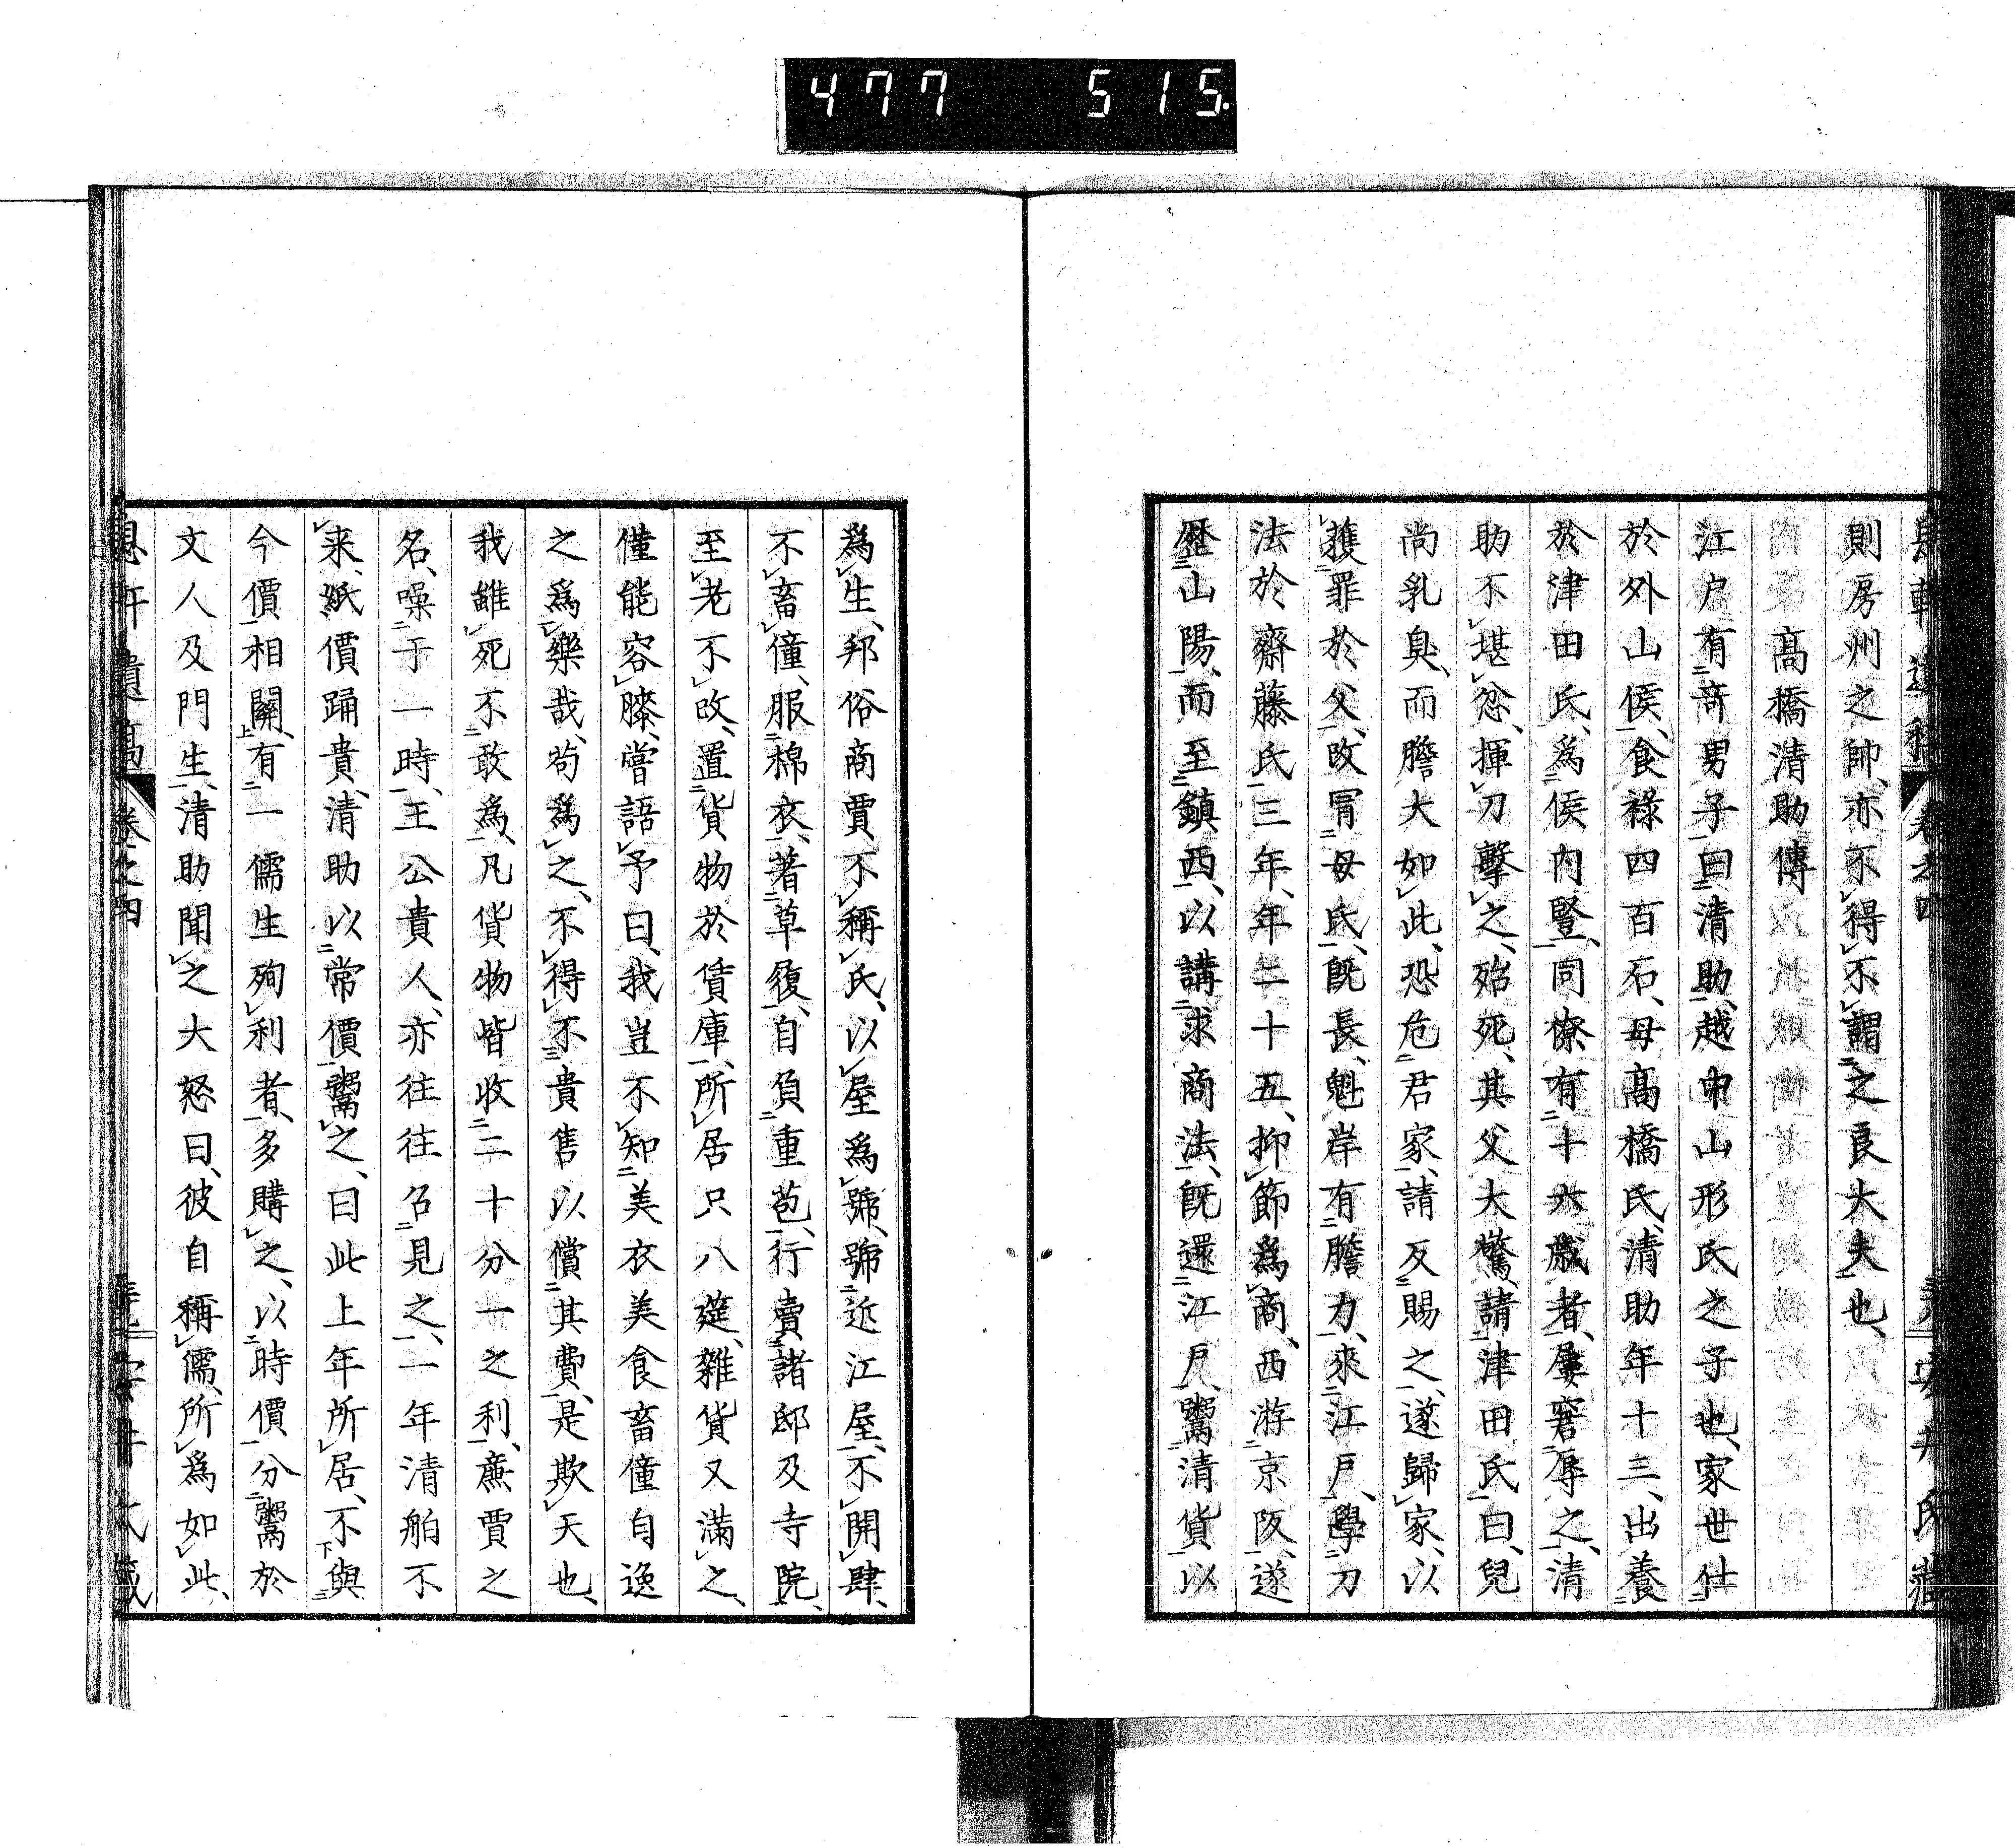 477 515.
則房州之帥、亦不得不謂之良大夫也、
高橋清助傳
江戶有奇男子曰清助、越中山形氏之子也、家世仕
於外山侯、食祿四百石、母高橋氏、清助年十三、出養
於津田氏、爲侯内豎、同僚有十六歲者、屢窘辱之、清
助不堪忿、揮刀擊之、殆死、其父大驚、請津田氏曰、兒
尚乳臭、而膽大如此、恐危君家、請反賜之、遂歸家、以
獲罪於父、改冐母氏、既長、魁岸有膽力、來江戶、學刀
法於齋藤氏三年、年二十五、抑節爲商、西游京阪、遂
歷山陽、而至鎮西、以講求商法、既還江戶、鬻清貨、以
爲生、邦俗商賈、不稱氏、以屋爲號、號近江屋、不開肆、
不畜僮、服棉衣、著草履、自負重苞、行賣諸邸及寺院、
至老不改、置貨物於賃庫、所居只八筵、雜貨又滿之、
僅能容膝、嘗語予曰、我豈不知美衣美食畜僮自逸
之爲樂哉、苟爲之、不得不貴售以償其費、是欺天也、
我雖死不敢爲、凡貨物皆收二十分一之利、廉賈之
名、噪于一時、王公貴人、亦往往召見之、一年清舶不
来、紙價踊貴、清助以常價鬻之、曰此上年所居、不與
今價相關、有一儒生殉利者、多購之、以時價分鬻於
文人及門生、清助聞之大怒曰、彼自稱儒、所爲如此、
息軒遺稿 卷之四
安井氏藏